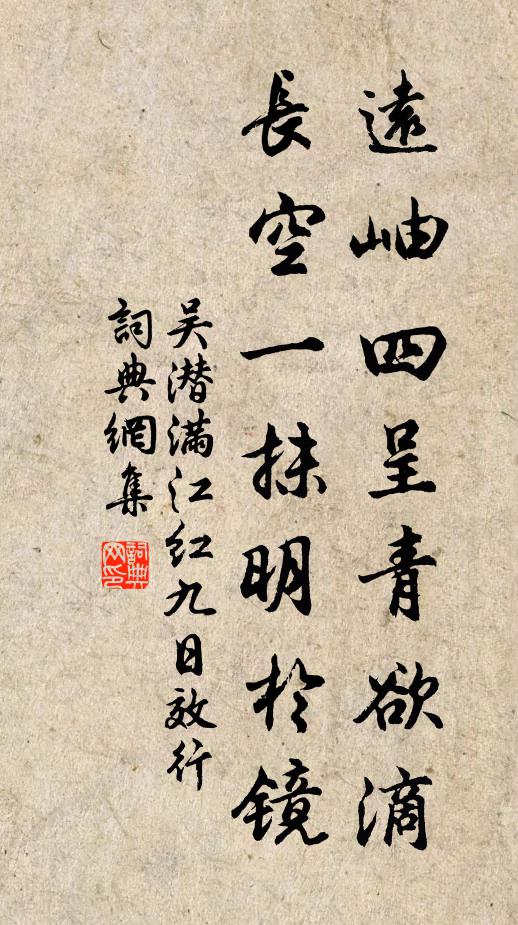 遠岫四呈青欲滴
長空一抹明於镜
吴潜滿江红九日效行
詞典網集
詞典网印